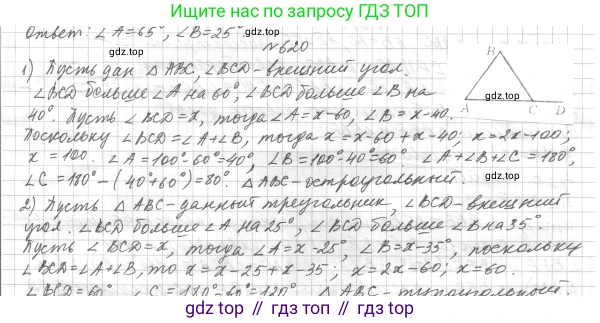 Ищите нас по запросу ГДЗ ТОП
Ответ: ∠A=65°, ∠B=25°
gdz.top
№620
1) Пусть дан △ABC, ∠BCD-внешний угол.
∠BCD больше ∠A на 60°, ∠BCD больше ∠B на
40°. Пусть ∠BCD=x, тогда ∠A=x-60, ∠B=x-40.
Поскольку ∠BCD=∠A+∠B, тогда x=x-60+x-40; x=2x-100;
x=100. ∠A=100°-60°=40°, ∠B=100°-40°=60°. ∠A+∠B+∠C=180°,
∠C=180°-(40°+60°)=80°. △ABC-остроугольный.
2) Пусть △ABC-данный треугольник, ∠BCD-внешний
угол. ∠BCD больше ∠A на 25°, ∠BCD больше ∠B на 35°.
Пусть ∠BCD=x, тогда ∠A=x-25°, ∠B=x-35°, поскольку
∠BCD=∠A+∠B, то x=x-25+x-35; x=2x-60; x=60.
∠BCD=60° ∠C=180°-60°=120° △ABC-тупоугольный.
B
A
C
D
gdz.top
gdz.top
gdz.top
gdz.top
gdz.top // gdz.top // gdz.top